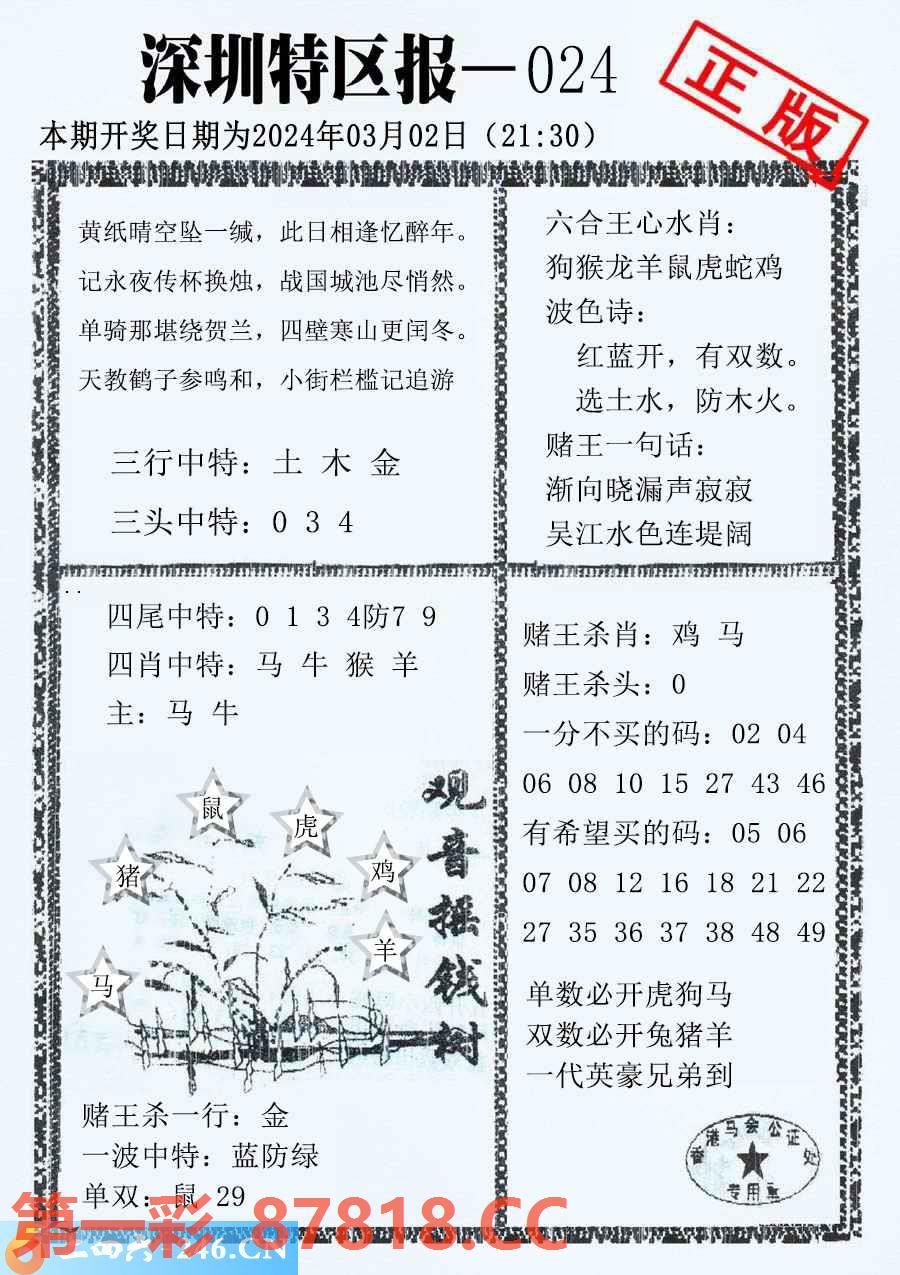 深圳特区报—024
正版
本期开奖日期为2024年03月02日（21:30）
黄纸晴空坠一缄，此日相逢忆醉年。
记永夜传杯换烛，战国城池尽悄然。
单骑那堪绕贺兰，四壁寒山更闰冬。
天教鹤子参鸣和，小街栏槛记追游
三行中特：土 木 金
三头中特：0 3 4
六合王心水肖：
狗猴龙羊鼠虎蛇鸡
波色诗：
红蓝开，有双数。
选土水，防木火。
赌王一句话：
渐向晓漏声寂寂
吴江水色连堤阔
四尾中特：0 1 3 4防7 9
四肖中特：马 牛 猴 羊
主：马 牛
鼠
虎
猪
鸡
羊
马
观音摇钱树
赌王杀一行：金
一波中特：蓝防绿
单双：鼠 29
赌王杀肖：鸡 马
赌王杀头：0
一分不买的码：02 04
06 08 10 15 27 43 46
有希望买的码：05 06
07 08 12 16 18 21 22
27 35 36 37 38 48 49
单数必开虎狗马
双数必开兔猪羊
一代英豪兄弟到
香港马会公证处
专用章
第一彩 87818.CC
246.CN